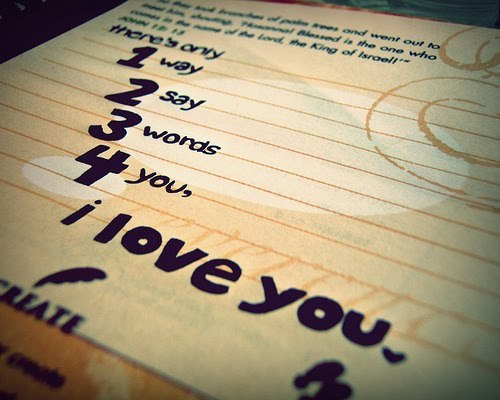 they took branches of palm trees and went out to
meet him, shouting, "Hosanna! Blessed is the one who
comes in the name of the Lord, the King of Israel!'"
JOHN 12:13
there's only
1 way
2 say
3 words
4 you,
i love you.
CREATE
create